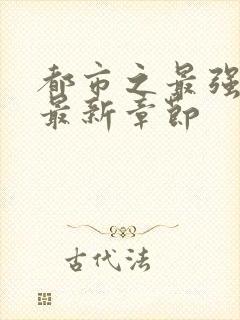 都市之最强
最新章节
古代法